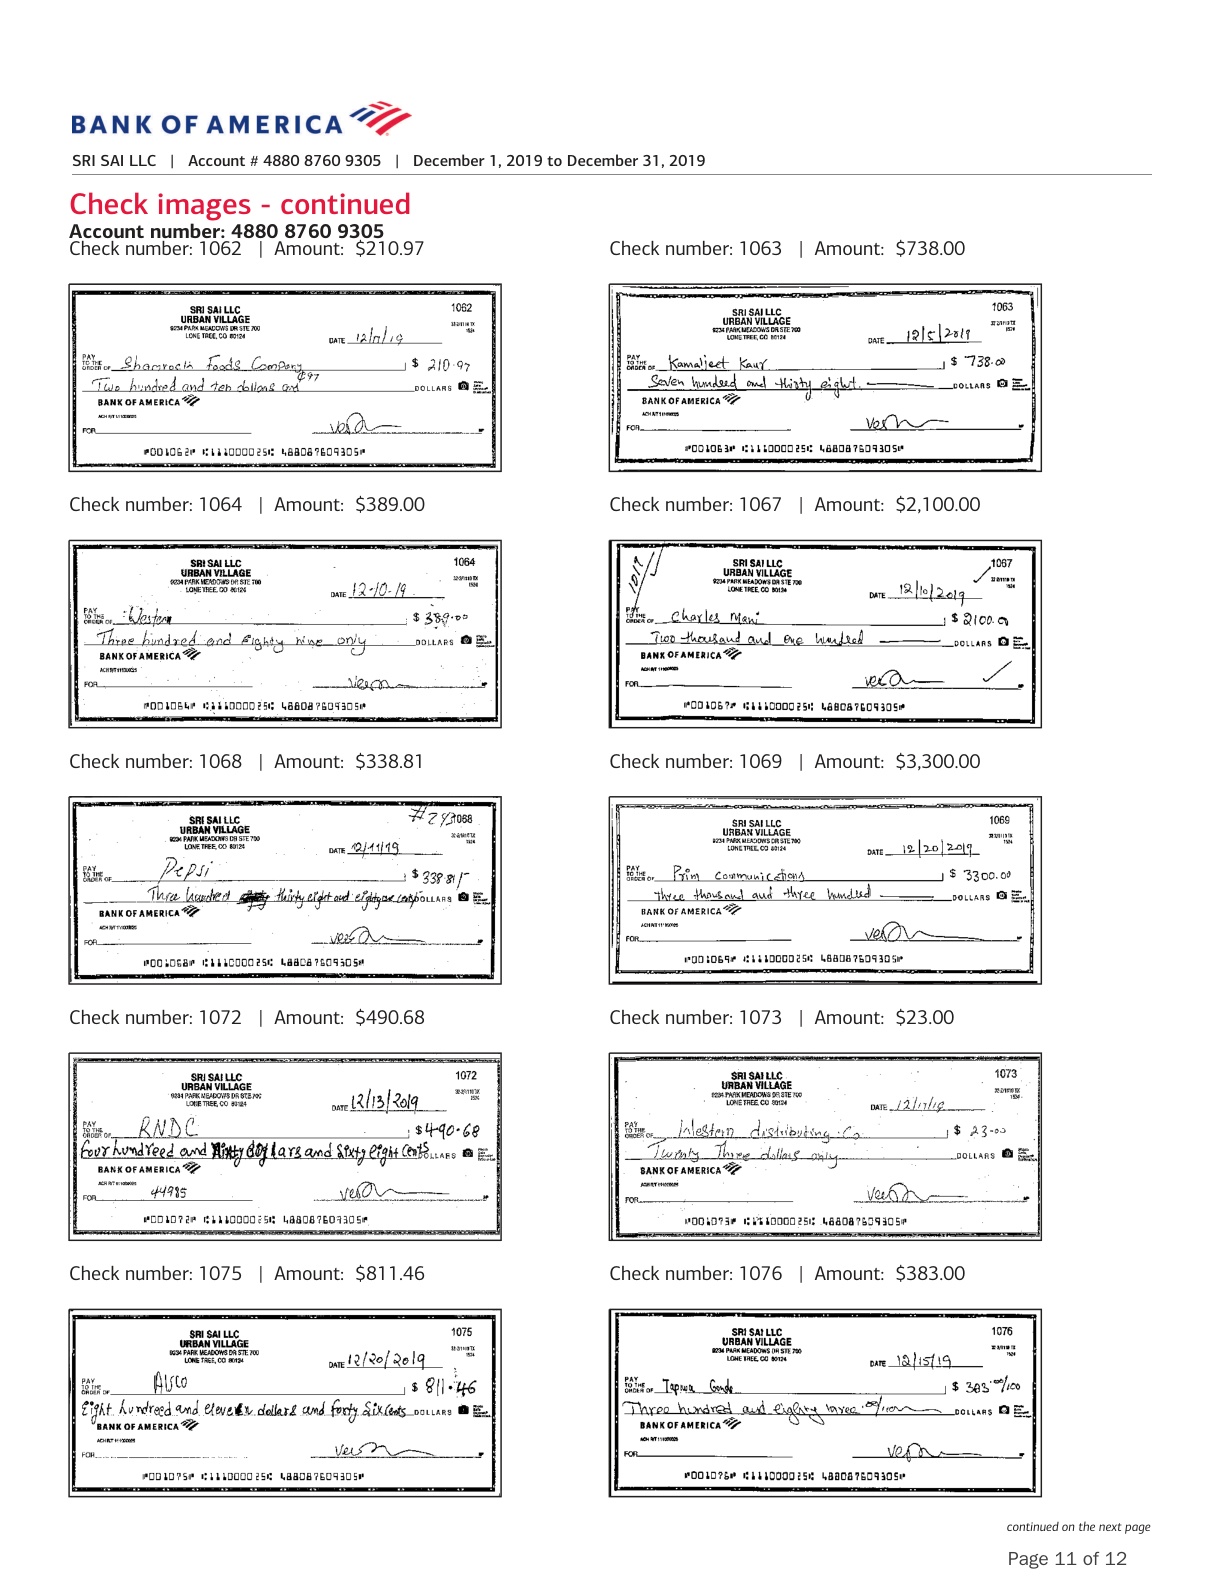 BANK OF AMERICA
SRI SAI LLC | Account # 4880 8760 9305 | December 1, 2019 to December 31, 2019
Check images - continued
Account number: 4880 8760 9305
Check number: 1062 | Amount: $210.97
SRI SAI LLC
URBAN VILLAGE
9234 PARK MEADOWS DR STE 700
LONE TREE, CO 80124
1062
DATE 12/11/19
PAY TO THE ORDER OF Shamrock Foods Company $ 210.97
Two hundred and ten dollars and ¢97 DOLLARS
BANK OF AMERICA
ACH R/T 111000025
FOR
⑈001062⑈ ⑆111000025⑆ 488087609305⑈
Check number: 1063 | Amount: $738.00
SRI SAI LLC
URBAN VILLAGE
9234 PARK MEADOWS DR STE 700
LONE TREE, CO 80124
1063
DATE 12/5/2019
PAY TO THE ORDER OF Kamaljeet Kaur $ 738.00
Seven hundred and thirty eight. DOLLARS
BANK OF AMERICA
ACH R/T 111000025
FOR
⑈001063⑈ ⑆111000025⑆ 488087609305⑈
Check number: 1064 | Amount: $389.00
SRI SAI LLC
URBAN VILLAGE
9234 PARK MEADOWS DR STE 700
LONE TREE, CO 80124
1064
DATE 12-10-19
PAY TO THE ORDER OF Western $ 389.00
Three hundred and Eighty nine only DOLLARS
BANK OF AMERICA
ACH R/T 111000025
FOR
⑈001064⑈ ⑆111000025⑆ 488087609305⑈
Check number: 1067 | Amount: $2,100.00
SRI SAI LLC
URBAN VILLAGE
9234 PARK MEADOWS DR STE 700
LONE TREE, CO 80124
1067
DATE 12/10/2019
PAY TO THE ORDER OF Charles Mani $ 2100.00
Two thousand and one hundred DOLLARS
BANK OF AMERICA
ACH R/T 111000025
FOR
⑈001067⑈ ⑆111000025⑆ 488087609305⑈
Check number: 1068 | Amount: $338.81
SRI SAI LLC
URBAN VILLAGE
9234 PARK MEADOWS DR STE 700
LONE TREE, CO 80124
1068
DATE 12/11/19
PAY TO THE ORDER OF Pepsi $ 338.81/-
Three hundred thirty eight and eighty one cents DOLLARS
BANK OF AMERICA
ACH R/T 111000025
FOR
⑈001068⑈ ⑆111000025⑆ 488087609305⑈
Check number: 1069 | Amount: $3,300.00
SRI SAI LLC
URBAN VILLAGE
9234 PARK MEADOWS DR STE 700
LONE TREE, CO 80124
1069
DATE 12/20/2019
PAY TO THE ORDER OF Prim Communications $ 3300.00
three thousand and three hundred DOLLARS
BANK OF AMERICA
ACH R/T 111000025
FOR
⑈001069⑈ ⑆111000025⑆ 488087609305⑈
Check number: 1072 | Amount: $490.68
SRI SAI LLC
URBAN VILLAGE
9234 PARK MEADOWS DR STE 700
LONE TREE, CO 80124
1072
DATE 12/13/2019
PAY TO THE ORDER OF RNDC $ 490.68
four hundreed and Ninty dollars and Sixty Eight Cents DOLLARS
BANK OF AMERICA
ACH R/T 111000025
FOR 44985
⑈001072⑈ ⑆111000025⑆ 488087609305⑈
Check number: 1073 | Amount: $23.00
SRI SAI LLC
URBAN VILLAGE
9234 PARK MEADOWS DR STE 700
LONE TREE, CO 80124
1073
DATE 12/17/19
PAY TO THE ORDER OF Western distributing Co $ 23.00
Twenty Three dollars only DOLLARS
BANK OF AMERICA
ACH R/T 111000025
FOR
⑈001073⑈ ⑆111000025⑆ 488087609305⑈
Check number: 1075 | Amount: $811.46
SRI SAI LLC
URBAN VILLAGE
9234 PARK MEADOWS DR STE 700
LONE TREE, CO 80124
1075
DATE 12/20/2019
PAY TO THE ORDER OF Alsco $ 811.46
Eight hundreed and eleven dollars and forty six Cents DOLLARS
BANK OF AMERICA
ACH R/T 111000025
FOR
⑈001075⑈ ⑆111000025⑆ 488087609305⑈
Check number: 1076 | Amount: $383.00
SRI SAI LLC
URBAN VILLAGE
9234 PARK MEADOWS DR STE 700
LONE TREE, CO 80124
1076
DATE 12/15/19
PAY TO THE ORDER OF Tapiwa $ 383.00/100
Three hundred and eighty three 00/100 DOLLARS
BANK OF AMERICA
ACH R/T 111000025
FOR
⑈001076⑈ ⑆111000025⑆ 488087609305⑈
continued on the next page
Page 11 of 12